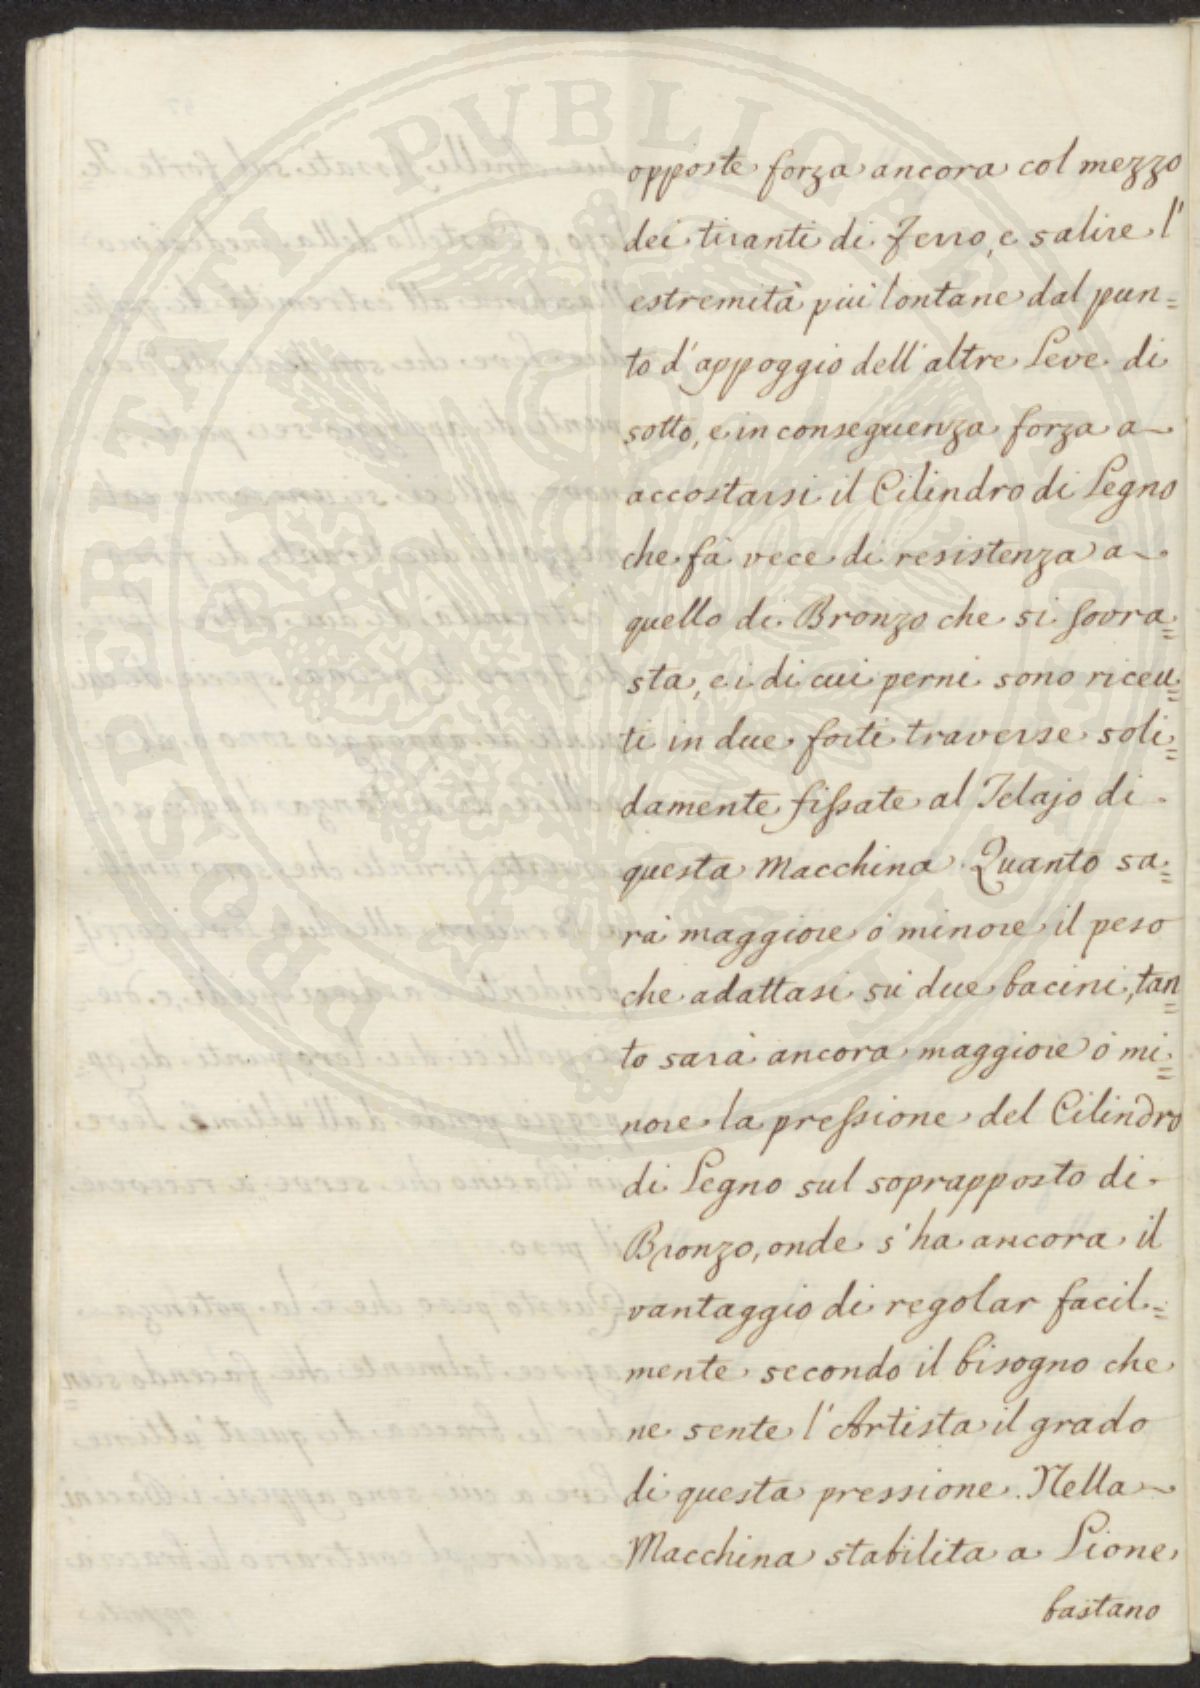 PROSPERITATI PUBLICAE AUGENDAE
opposte forza ancora col mezzo
dei tiranti di Ferro, e salire l'
estremità più lontane dal pun=
to d'appoggio dell'altre Leve di
sotto, e in conseguenza forza a
accostarsi il Cilindro di Legno
che fà vece di resistenza a
quello di Bronzo che si sovra=
sta, e i di cui perni sono riceu=
ti in due forti traverse soli=
damente fissate al Telajo di
questa Macchina. Quanto sa=
rà maggiore ò minore il peso
che adattasi sù due bacini, tan=
to sarà ancora maggiore ò mi=
nore la pressione del Cilindro
di Legno sul soprapposto di
Bronzo, onde s'ha ancora il
vantaggio di regolar facil=
mente secondo il bisogno che
ne sente l'Artista il grado
di questa pressione. Nella
Macchina stabilita a Lione
bastano